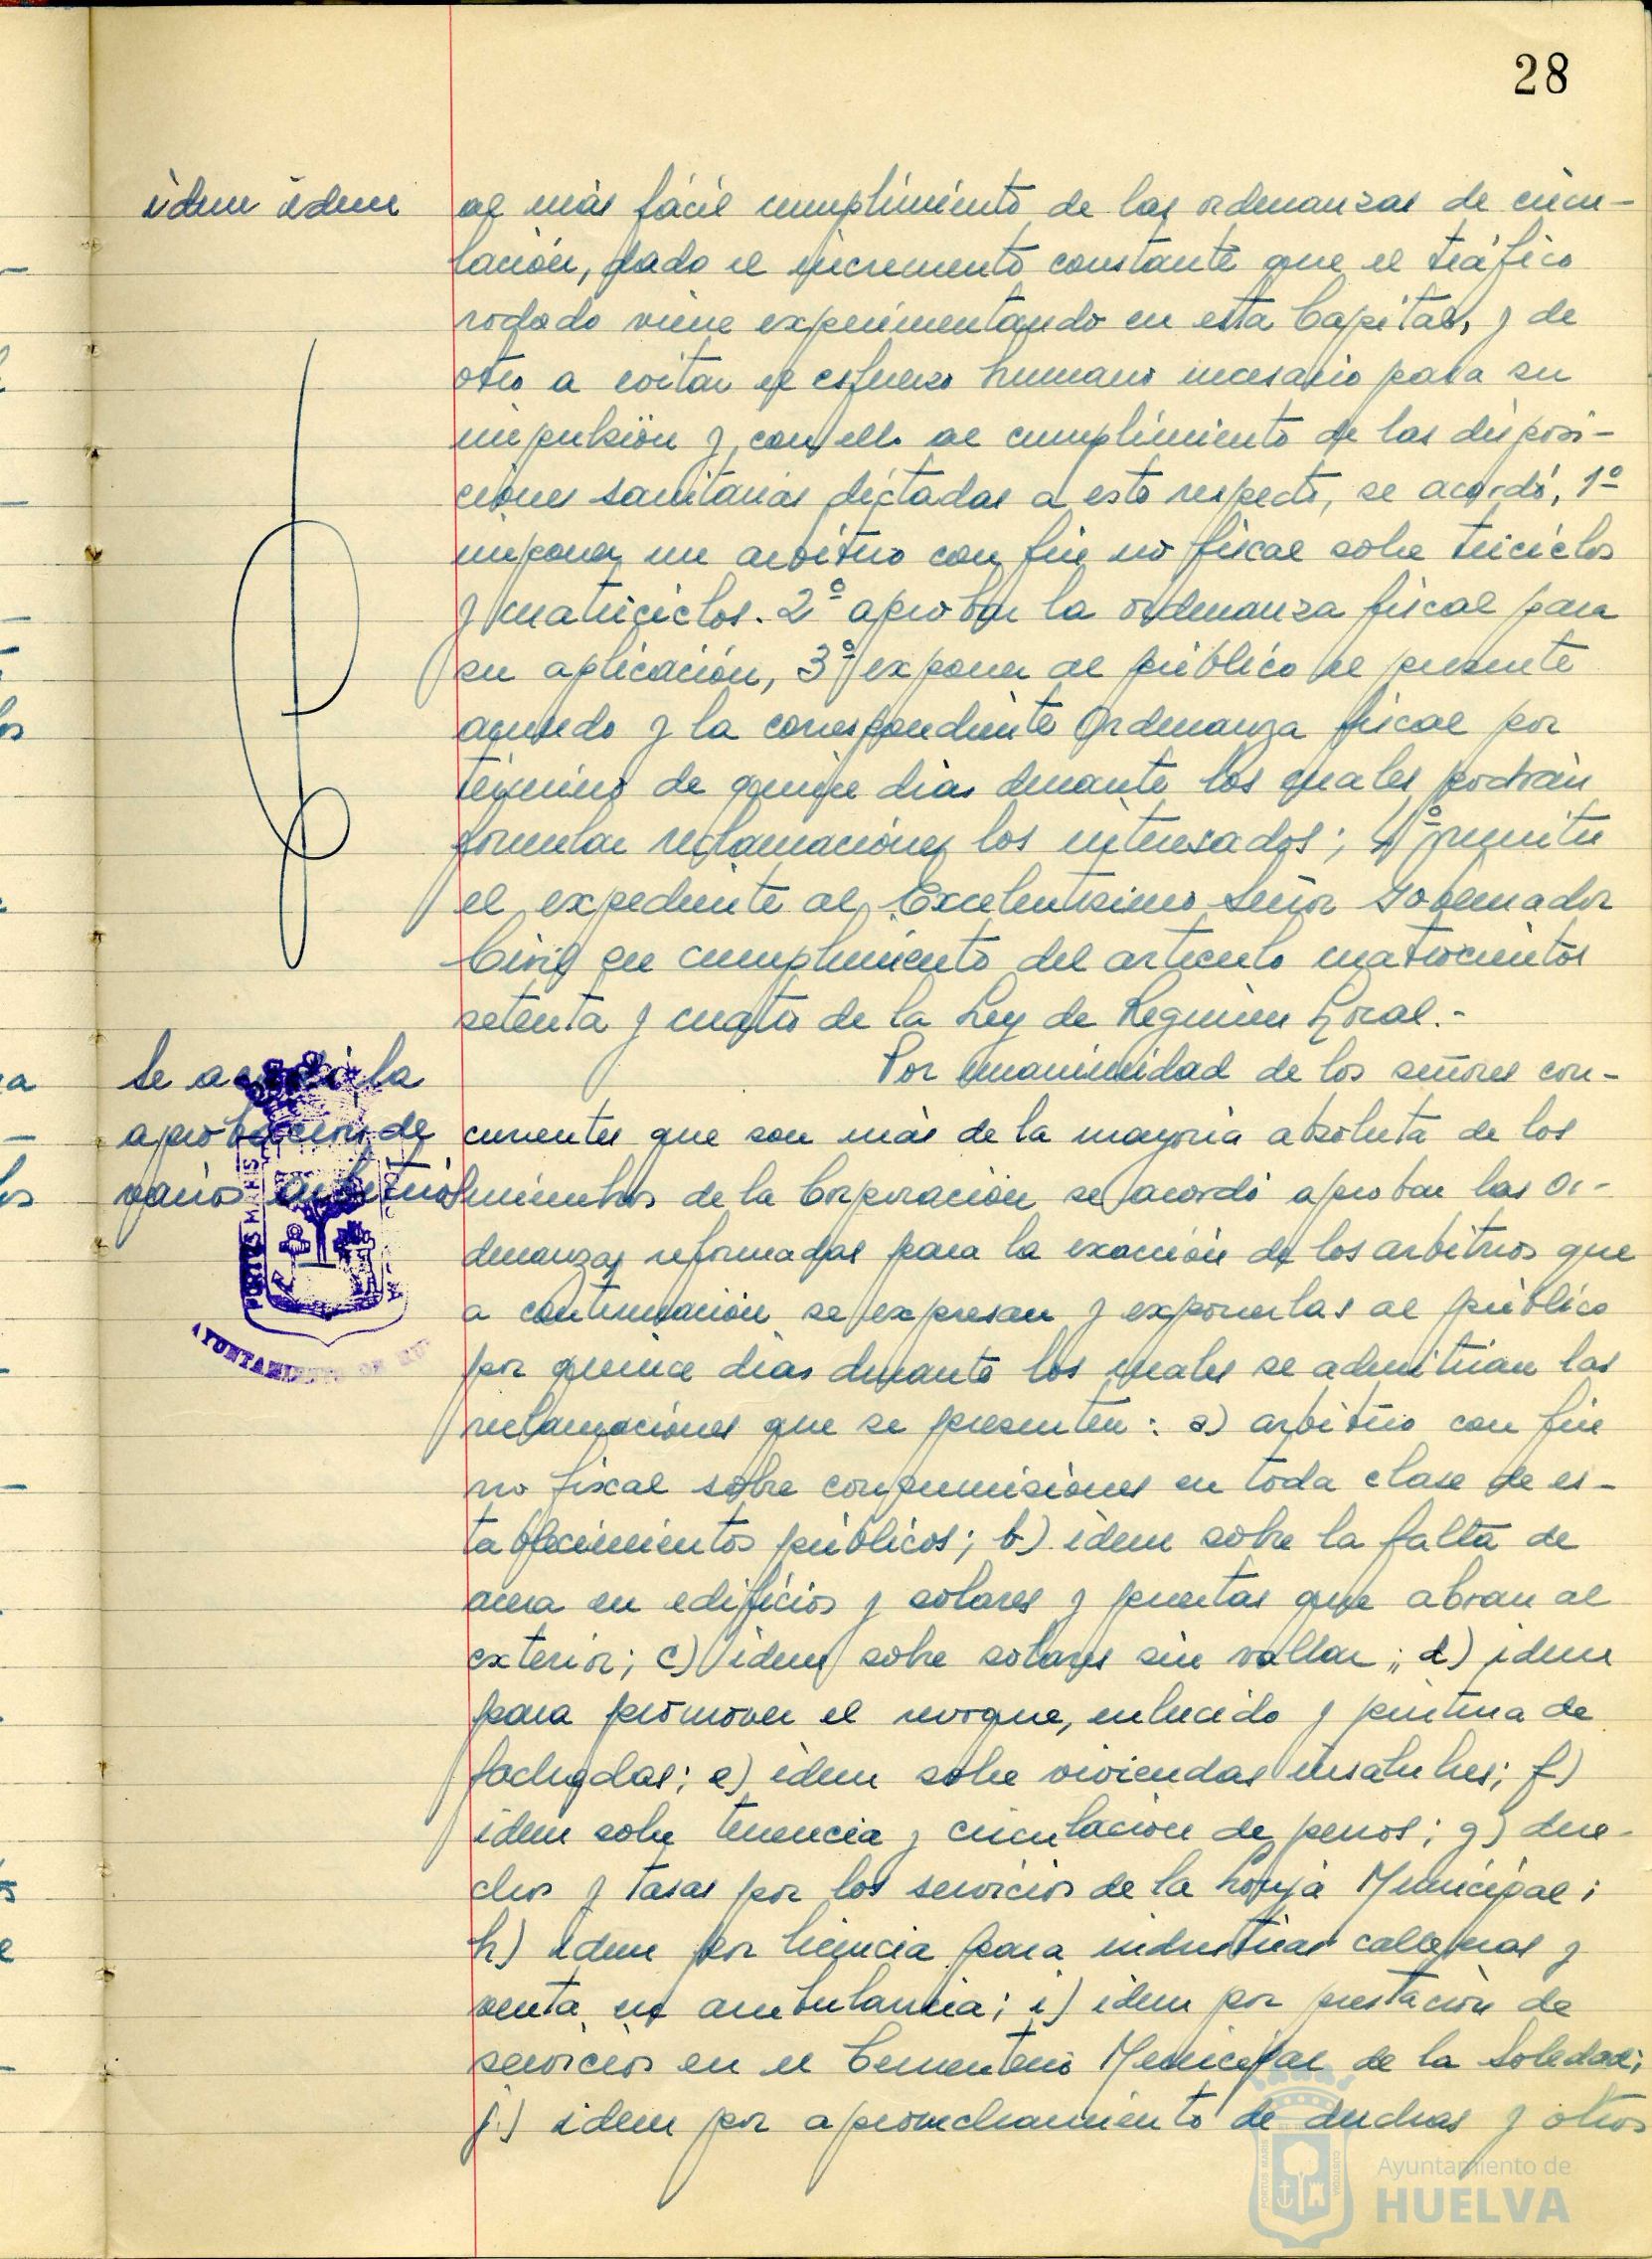 28
idem idem
al más fácil cumplimiento de las ordenanzas de circu-
lación, dado el incremento constante que el tráfico
rodado viene experimentando en esta Capital, y de
otro a evitar el esfuerzo humano necesario para su
impulsión y con ello al cumplimiento de las disposi-
ciones sanitarias dictadas a este respecto, se acordó, 1º
imponer un arbitrio con fin no fiscal sobre triciclos
y cuatriciclos. 2º aprobar la ordenanza fiscal para
su aplicación, 3º exponer al público el presente
acuerdo y la correspondiente Ordenanza fiscal por
término de quince dias durante los cuales podrán
formular reclamaciones los interesados; 4º remitir
el expediente al Excelentisimo Señor Gobernador
Civil en cumplimiento del articulo cuatrocientos
setenta y cuatro de la Ley de Regimen Local.-
Se acordó la
aprobación de
varios arbitrios
Por unanimidad de los señores con-
currentes que son más de la mayoria absoluta de los
miembros de la Corporación se acordó aprobar las or-
denanzas reformadas para la exacción de los arbitrios que
a continuación se expresan y exponerlas al público
por quince dias durante los cuales se admitirian las
reclamaciones que se presenten: a) arbitrio con fin
no fiscal sobre consumisiones en toda clase de es-
tablecimientos públicos; b) idem sobre la falta de
acera en edificios y solares y puertas que abran al
exterior; c) idem sobre solares sin vallar; d) idem
para promover el revoque, enlucido y pintura de
fachadas; e) idem sobre viviendas insalubres; f)
idem sobre tenencia y circulación de perros; g) dere-
chos y tasas por los servicios de la Lonja Municipal;
h) idem por licencia para industrias callejeras y
venta en ambulancia; i) idem por prestación de
servicios en el Cementerio Municipal de la Soledad;
j) idem por aprovechamiento de duchas y otros
PORTUS MARIS
AYUNTAMIENTO DE
Ayuntamiento de
HUELVA